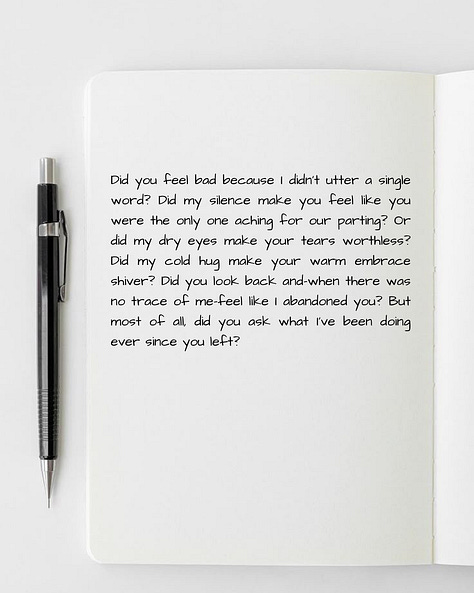 Did you feel bad because I didn't utter a single
word? Did my silence make you feel like you
were the only one aching for our parting? Or
did my dry eyes make your tears worthless?
Did my cold hug make your warm embrace
shiver? Did you look back and-when there was
no trace of me-feel like I abandoned you? But
most of all, did you ask what I've been doing
ever since you left?